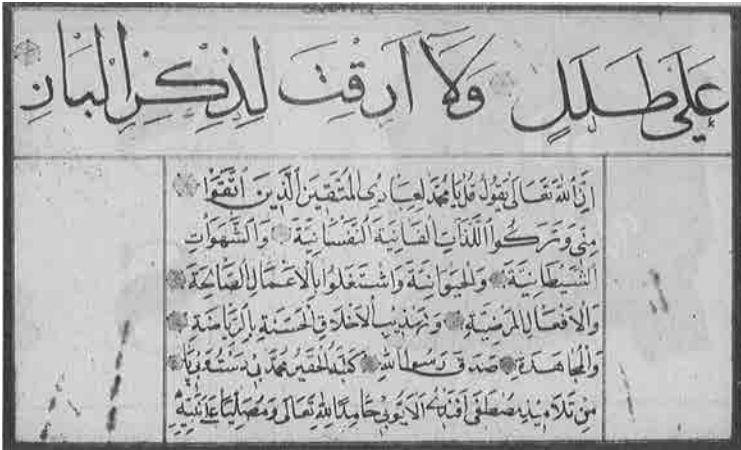 عَلَى طَلَلٍ وَلَا اَرِقْتَ لِذِكْرِ الْبَانِ
اِنَّ اللهَ تَعَالَى يَقُولُ قُلْ يَا مُحَمَّدُ لِعِبَادِى الْمُتَّقِينَ الَّذِينَ اتَّقَوْا
مِنِّى وَتَرَكُوا اللَّذَّاتِ الْفَانِيَةَ النَّفْسَانِيَّةَ وَالشَّهَوَاتِ
الشَّيْطَانِيَّةَ وَالْحَيَوَانِيَّةَ وَاشْتَغَلُوا بِالْاَعْمَالِ الصَّالِحَةِ
وَالْاَفْعَالِ الْمَرْضِيَّةِ وَتَهْذِيبِ الْاَخْلَاقِ الْحَسَنَةِ بِالرِّيَاضَةِ
وَالْمُجَاهَدَةِ صَدَقَ رَسُولُ اللهِ كَتَبَهُ الْحَقِيرُ مُحَمَّدْ
مِنْ تَلَامِيذِ مُصْطَفَى اَفَنْدِى الْاَيُّوبِى حَامِدًا لِلّٰهِ تَعَالَى وَمُصَلِّيًا عَلَى نَبِيِّهِ